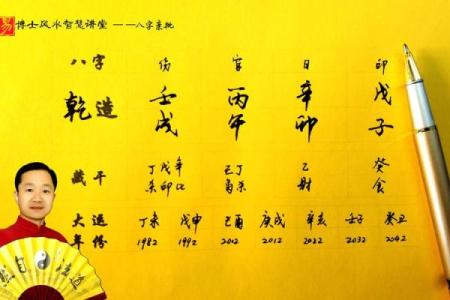 易 博士风水智慧讲堂 ——八字亲批
八字 伤 官 日 印
乾造 壬戌 丙午 辛卯 戊子
藏干 丁戊辛 己丁 乙 癸
杀印比 枭杀 财 食
大运 丁未 戊申 己酉 庚戌 辛亥 壬子 癸丑
年份 1982 1992 2012 2012 2022 2032 2042
自 法道